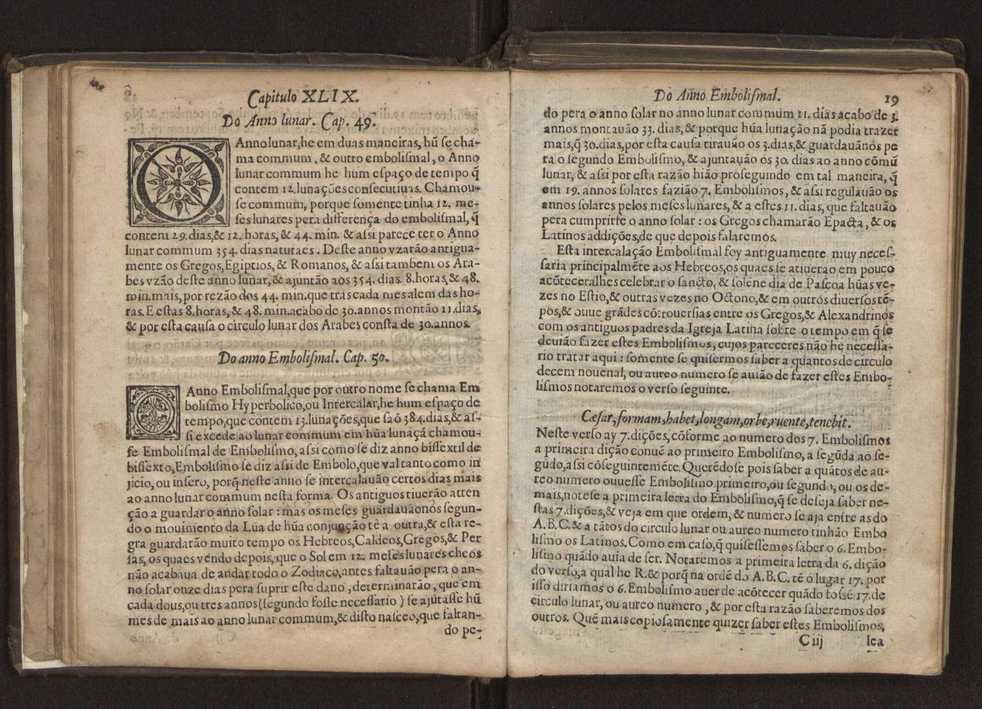 Capitulo XLIX.
Do Anno lunar. Cap. 49.
O Anno lunar, he em duas maneiras, hũ se cha-
ma commum, & outro embolismal, o Anno
lunar commum he hum espaço de tempo q̃
contem 12. lunações consecutiuas. Chamou-
se commum, porque somente tinha 12. me-
ses lunares pera differença do embolismal, q̃
contem 29. dias, & 12. horas, & 44. min. & assi parece ter o Anno
lunar commum 354. dias naturaes. Deste anno vzarão antigua-
mente os Gregos, Egiptios, & Romanos, & assi tambem os Ara-
bes vzão deste anno lunar, & ajuntão aos 354. dias. 8. horas, & 48.
min. mais, por rezão dos 44. min. que tras cada mes alem das ho-
ras. E estas 8. horas, & 48. min. acabo de 30. annos montão 11. dias,
& por esta causa o circulo lunar dos Arabes consta de 30. annos.
Do anno Embolismal. Cap. 50.
O Anno Embolismal, que por outro nome se chama Em
bolismo Hyperbolico, ou Intercalar, he hum espaço de
tempo, que contem 13. lunações, que saõ 384. dias, & as-
si excede ao lunar commum em hũa lunaçã chamou-
se Embolismal de Embolismo, assi como se diz anno bissextil de
bissexto, Embolismo se diz assi de Embolo, que val tanto como in
jicio, ou insero, porq̃ neste anno se intercalauão certos dias mais
ao anno lunar commum nesta forma. Os antiguos tiuerão atten
ção a guardar o anno solar: mas os meses guardauãonos segun-
do o mouimento da Lũa de hũa conjunção tè a outra, & esta re-
gra guardarão muito tempo os Hebreos, Caldeos, Gregos, & Per
sas, os quaes vendo depois, que o Sol em 12. meses lunares cheos
não acabaua de andar todo o Zodiaco, antes faltauão pera o an-
no solar onze dias pera suprir este dano, determinarão, que em
cada dous, ou tres annos (segundo fosse necessario) se ajũtasse hũ
mes de mais ao anno lunar commum, & disto nasceo, que faltan-
do pe-
Do Anno Embolismal. 19
do pera o anno solar no anno lunar commum 11. dias acabo de 3.
annos montauão 33. dias, & porque hũa lunação nã podia trazer
mais, q̃ 30. dias, por esta causa tirauão os 3. dias, & guardauãnos pe
ra o segundo Embolismo, & ajuntauão os 30. dias ao anno cõmũ
lunar, & assi por esta razão hião proseguindo em tal maneira, q̃
em 19. annos solares fazião 7. Embolismos, & assi regulauão os
annos solares pelos meses lunares, & a estes 11. dias, que faltauão
pera cumprirse o anno solar: os Gregos chamarão Epacta, & os
Latinos addições, de que depois falaremos.
Esta intercalação Embolismal foy antiguamente muy neces-
saria principalmẽte aos Hebreos, os quaes se atiuerão em pouco
acõtecerálhes celebrar o sancto, & solene dia de Pascoa hũas ve-
zes no Estio, & outras vezes no Octono, & em outros diuersos tẽ-
pos, & ouue grãdes cõtrouersias entre os Gregos, & Alexandrinos
com os antiguos padres da Igreja Latina sobre o tempo em q̃ se
deuião fazer estes Embolismos, cujos pareceres não he necessa-
rio tratar aqui: somente se quisermos saber a quantos de circulo
decem nouenal, ou aureo numero se auião de fazer estes Embo-
lismos notaremos o verso seguinte.
Cesar, formam, habet, longam, orbe, ruente, tenebit.
Neste verso ay 7. dições, cõforme ao numero dos 7. Embolismos
a primeira dição conuẽ ao primeiro Embolismo, a segũda ao se-
gũdo, assi cõseguintemẽte. Querẽdose pois saber a quãtos de au-
reo numero ouuesse Embolismo primeiro, ou segundo, ou os de-
mais, notese a primeira letra do Embolismo, q̃ se deseja saber ne-
stas 7. dições, & veja em que ordem, & numero se aja entre as do
A.B.C. & a tãtos do circulo lunar ou aureo numero tinhão Embo
lismo os Latinos. Como em caso, q̃ quisessemos saber o 6. Embo-
lismo quãdo auia de ser. Notaremos a primeira letra da 6. dição
do verso, a qual he R. & porq̃ na ordẽ do A.B.C. tẽ o lugar 17. por
isso diriamos o 6. Embolismo auer de acõtecer quãdo fosse 17. de
circulo lunar, ou aureo numero, & por esta razão saberemos dos
outros. Quẽ mais copiosamente quizer saber estes Embolismos,
C iij lea